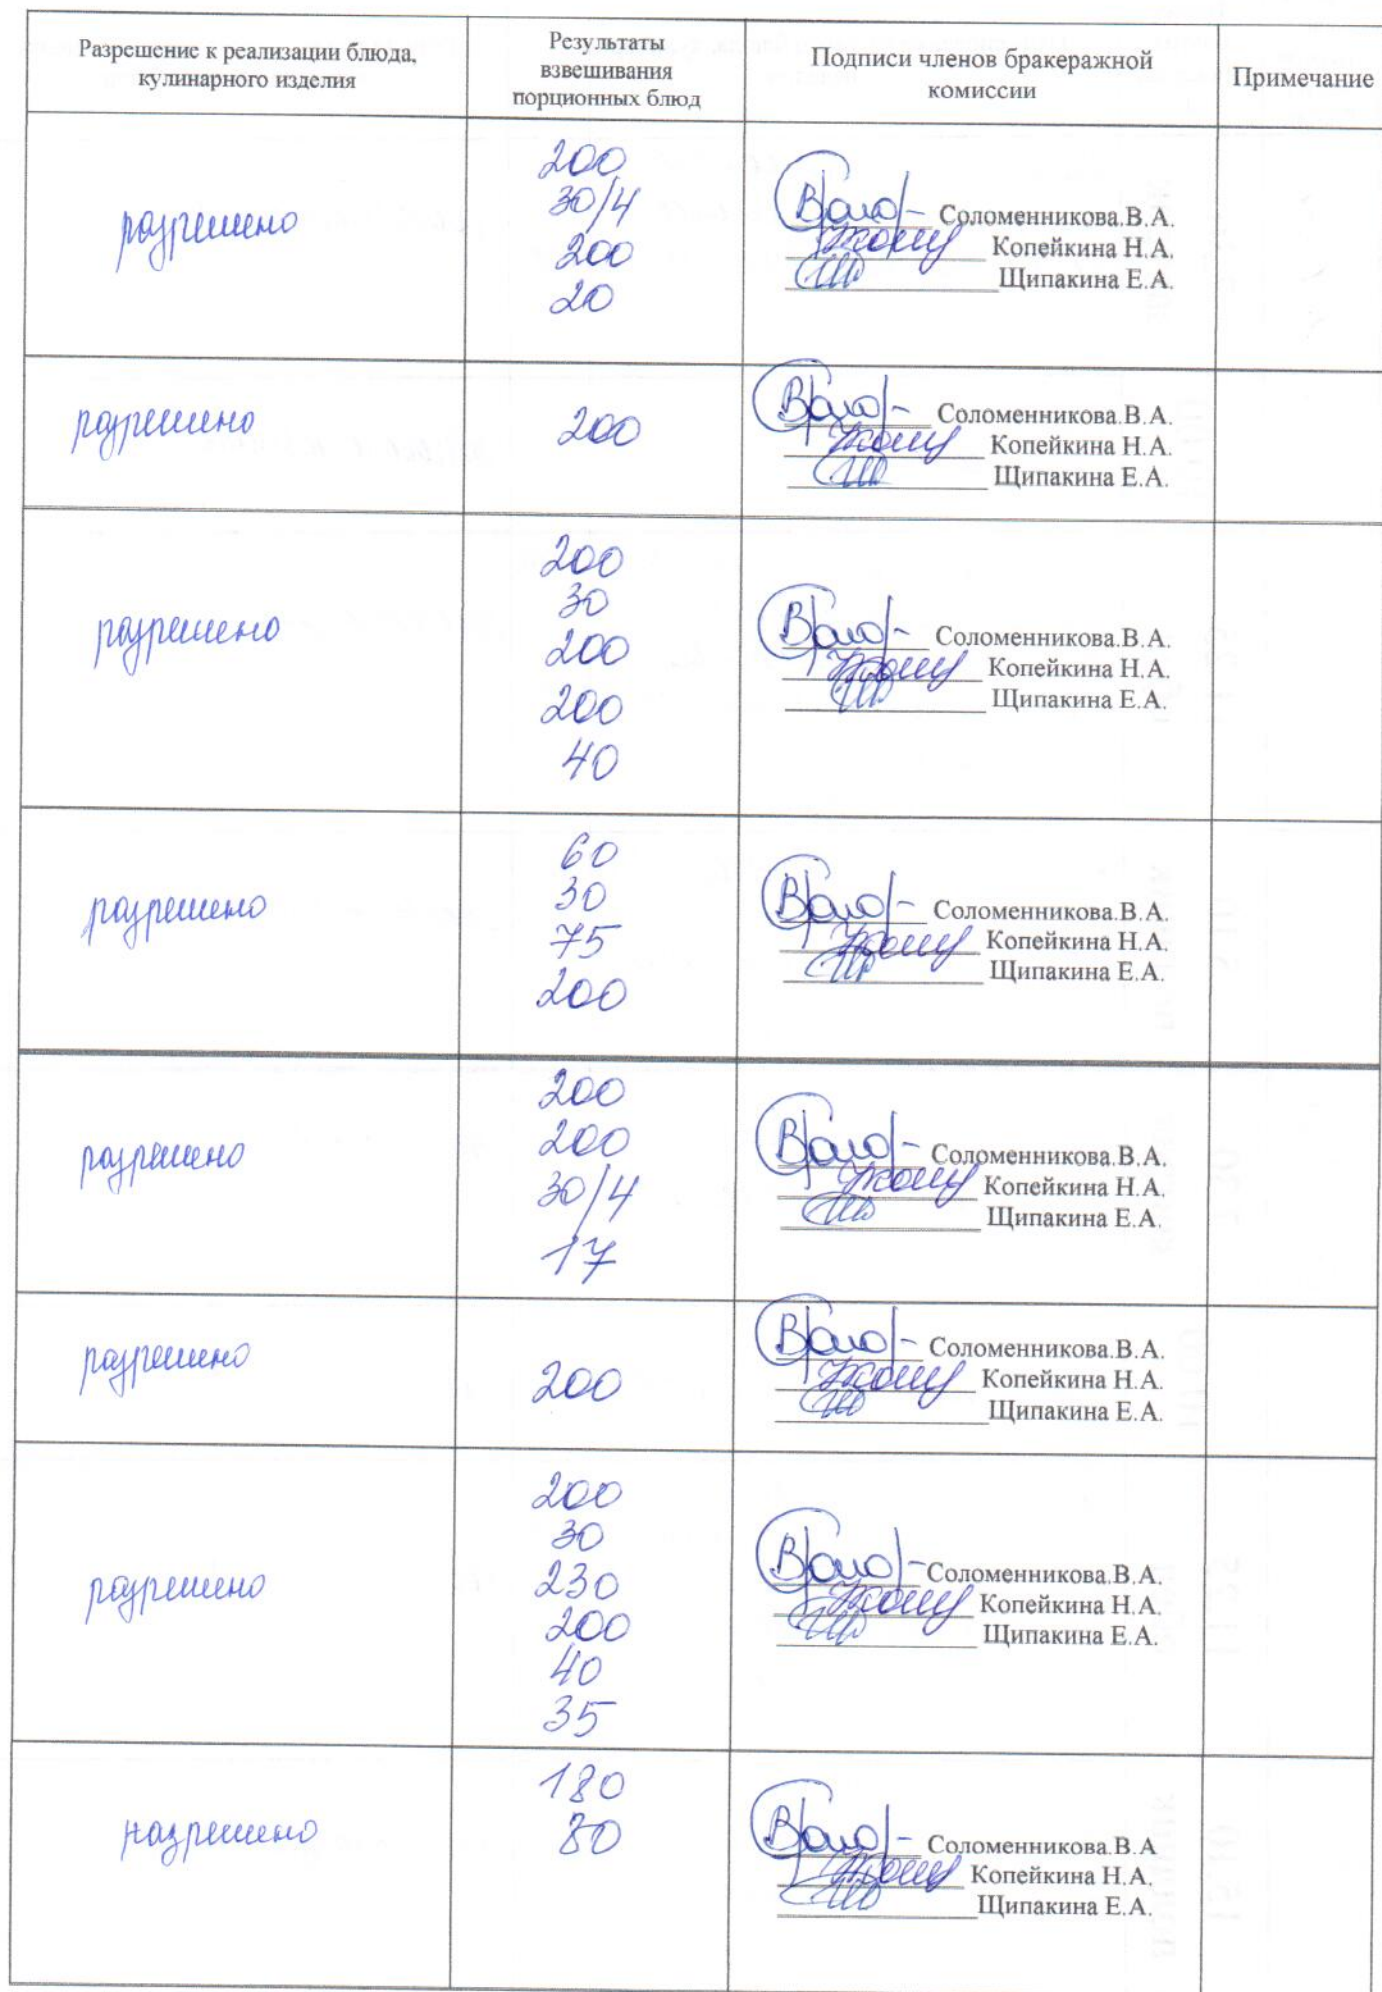 Разрешение к реализации блюда, кулинарного изделия
Результаты взвешивания порционных блюд
Подписи членов бракеражной комиссии
Примечание
разрешено
200
30/4
200
20
Соломенникова.В.А.
Копейкина Н.А.
Щипакина Е.А.
разрешено
200
Соломенникова.В.А.
Копейкина Н.А.
Щипакина Е.А.
разрешено
200
30
200
200
40
Соломенникова.В.А.
Копейкина Н.А.
Щипакина Е.А.
разрешено
60
30
75
200
Соломенникова.В.А.
Копейкина Н.А.
Щипакина Е.А.
разрешено
200
200
30/4
17
Соломенникова.В.А.
Копейкина Н.А.
Щипакина Е.А.
разрешено
200
Соломенникова.В.А.
Копейкина Н.А.
Щипакина Е.А.
разрешено
200
30
230
200
40
35
Соломенникова.В.А.
Копейкина Н.А.
Щипакина Е.А.
разрешено
180
80
Соломенникова.В.А
Копейкина Н.А.
Щипакина Е.А.